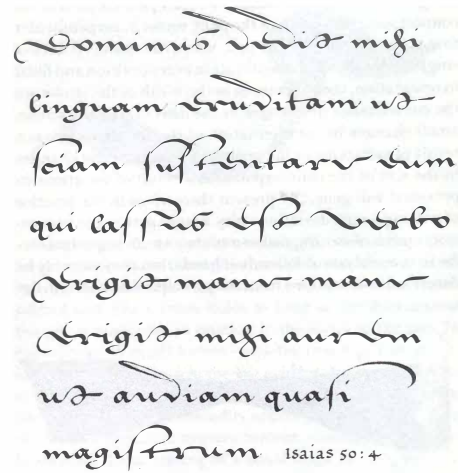 Dominus dedit mihi
linguam eruditam ut
sciam sustentare eum
qui lassus est verbo
erigit mane mane
erigit mihi aurem
ut audiam quasi
magistrum Isaias 50:4